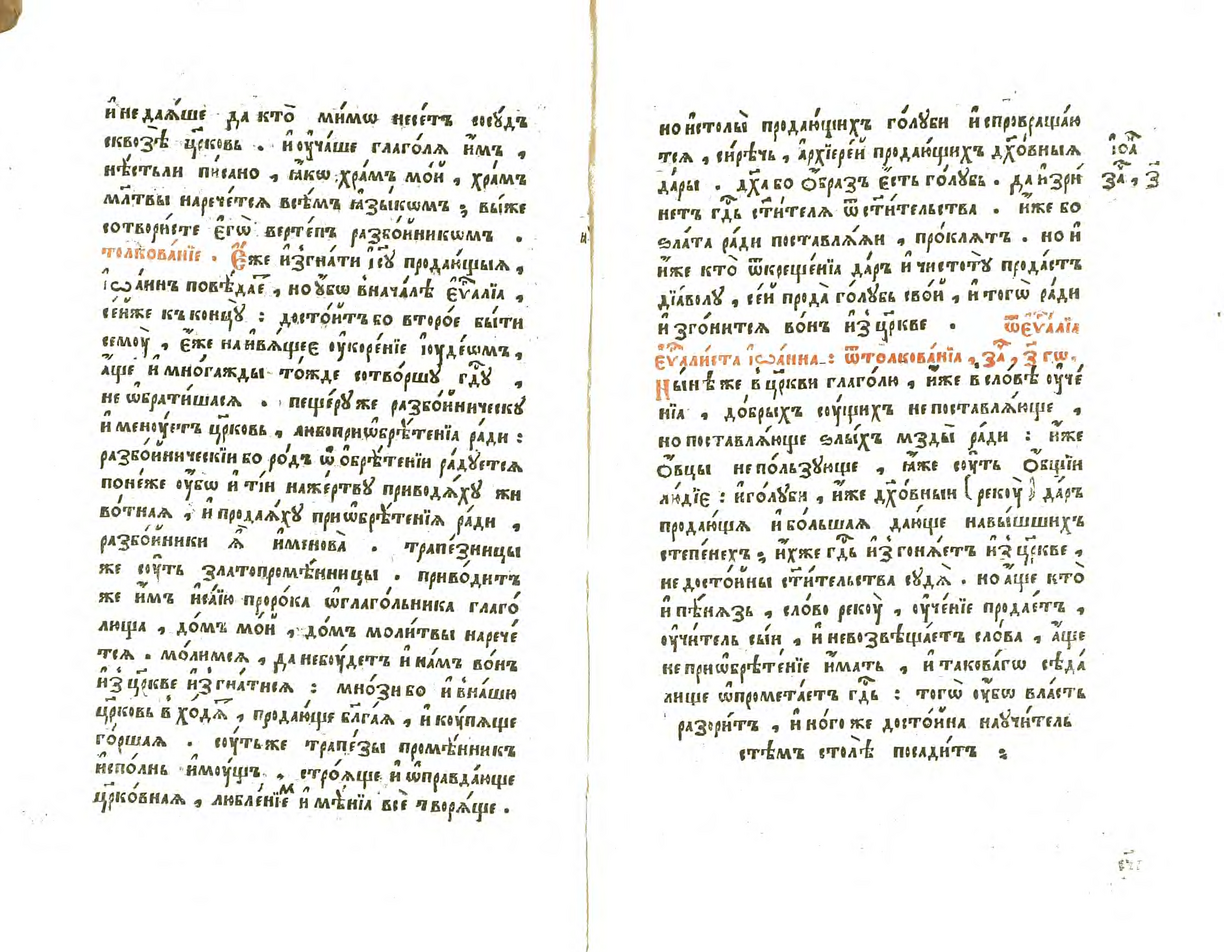 и҆ недаѧ́ше да кто̀ ми́мѡ несе́тъ сосу́дъ
сквозѣ̀ цр҃ковь . и҆ оу҆ча́ше глаго́лѧ и҆̀мъ ,
нѣ́стьли пи́сано , ꙗ҆́кѡ хра́мъ мо́й , хра́мъ
мл҃твы нарече́тсѧ всѣ́мъ ꙗ҆зы́кѡмъ ; вы́же
сотвори́сте є҆гѡ̀ верте́пъ разбо́йникѡмъ .
толкова́нїе . Є҆́же и҆згна́ти і҆с҃у продаю́щыѧ ,
і҆ѡа́ннъ повѣ́даеⷮ , но оу҆́бѡ внача́лѣ є҆ѵⷢ҇алїа ,
се́йже къ концу̀ : досто́итъ бо второ́е бы́ти
семоу̀ , є҆́же наи́вѧщее оу҆коре́нїе і҆оуде́ѡмъ ,
а҆́ще и҆ мно́гажды то́жде сотво́ршу гдⷭ҇у ,
не ѡ҆брати́шасѧ . пеще́ру же разбо́йническу
и҆менꙋ́етъ цр҃ковь , любоприѡбрѣ́тенїа ра́ди :
разбо́йническїи бо ро́дъ ѡ҆ обрѣ́тенїи ра́дуетсѧ
поне́же оу҆́бѡ и҆ ті́и на же́ртву привождѧ́ху жи
во́тнаѧ , и҆ продаѧ́ху приѡбрѣ́тенїѧ ра́ди ,
разбо́йники ѧ҆̀ и҆менова̀ . трапе́зницы
же соу́ть златопромѣ́нницы . приво́дитъ
же и҆̀мъ и҆са́їю проро́ка ѡ҆глаго́льника глаго́
люща , до́мъ мо́й , до́мъ моли́твы нарече́
тсѧ . мо́лимсѧ , да небоу́детъ и҆ на́мъ во́нъ
и҆з̾ цр҃кве и҆згна́тисѧ : мно́зи бо и҆ в на́шю
цр҃ковь вхо́дѧⷮ , продаю́ще бл҃га́ѧ , и҆ коупѧ́ще
го́ршаѧ . соу́ть же трапе́зы промѣ́нникъ
и҆спо́лнь и҆моу́щъ , строѧ́ще и҆ ѡ҆правда́юще
цр҃ко́внаѧ , любле́нїеⷨ и҆мѣ́нїа всѐ творѧ́ще .
но и҆ столы̀ продаю́щихъ го́луби и҆спровраща́ю
тсѧ , си́рѣчь , а҆рхїере́й продаю́щихъ дх҃о́вныѧ
да́ры . дх҃а бо ѻ҆́бразъ є҆́сть го́лубь . да и҆зри́
нетъ гдⷭ҇ь ст҃и́телѧ ѿ ст҃и́тельства . и҆́же бо
ѕла́та ра́ди поставлѧ́ѧи , про́клѧтъ . но и҆
и҆́же кто̀ ѿ креще́нїа да́ръ и҆ чистоту̀ прода́стъ
дїа́волу , се́й прода̀ го́лубь сво́й , и҆ тогѡ̀ ра́ди
и҆згони́тсѧ во́нъ и҆з̾ цр҃кве . ѿ є҆ѵⷢ҇а́лїа
є҆ѵⷢ҇али́ста і҆ѡа́нна : ѿ толкова́нїа , заⷱ҇ , з҃ гѡ .
Нн҃ѣ же в цр҃кви глаго́лю , и҆́же в сло́вѣ оу҆че́
нїа , до́брыхъ соу́щихъ не поставлѧ́юще ,
но поставлѧ́юще ѕлы́хъ мзды̀ ра́ди : и҆́же
ѻ҆́вцы не по́льзующе , ꙗ҆́же соу́ть ѻ҆́бщїи
лю́дїе : и҆ го́луби , и҆́же дх҃о́вныи (рекоу̀) да́ръ
продаю́щѧ и҆ бо́льшаѧ даю́ще на вы́шшихъ
степе́нехъ ; и҆́хже гдⷭ҇ь и҆згонѧ́етъ и҆з̾ цр҃кве ,
недосто́йны ст҃и́тельства судѧ̀ . но а҆́ще кто̀
и҆ пѣ́нѧзь , сло́во рекоу̀ , оу҆че́нїе продае́тъ ,
оу҆чи́тель сы́и , и҆ не возвѣща́етъ сло́ва , а҆́ще
не приѡбрѣ́тенїе и҆́мать , и҆ такова́гѡ сѣда́
лище ѡ҆промета́етъ гдⷭ҇ь : тогѡ̀ оу҆́бѡ вла́сть
разори́тъ , и҆ но́гоже досто́йна на оучи́тель
стѣ́мъ столѣ̀ посади́тъ ;
і҆оаⷩ҇
заⷱ҇ , з҃